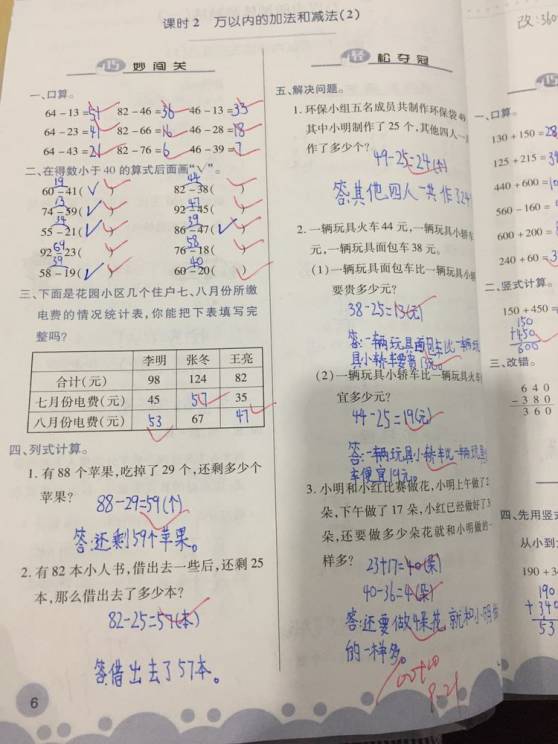 课时2 万以内的加法和减法(2)
改:360
巧 妙闯关
一、口算。
64-13=51 82-46=36 46-13=33
64-23=41 82-66=16 46-28=18
64-43=21 82-76=6 46-39=7
二、在得数小于40的算式后面画“√”。
19 44
60-41(√) 82-38( )
13 47
74-59(√) 92-45( )
34 39
55-21(√) 86-47(√)
69 58
92-23( ) 76-18( )
39 40
58-19(√) 60-20( )
三、下面是花园小区几个住户七、八月份所缴
电费的情况统计表,你能把下表填写完
整吗?
李明 张冬 王亮
合计(元) 98 124 82
七月份电费(元) 45 57 35
八月份电费(元) 53 67 47
四、列式计算。
1.有88个苹果,吃掉了29个,还剩多少个
苹果?
88-29=59(个)
答:还剩59个苹果。
2.有82本小人书,借出去一些后,还剩25
本,那么借出去了多少本?
82-25=57(本)
答:借出去了57本。
6
轻 松夺冠
五、解决问题。
1.环保小组五名成员共制作环保袋49
其中小明制作了25个,其他四人一
作了多少个?
49-25=24(个)
答:其他四人一共作
2.一辆玩具火车44元,一辆玩具小轿车
元,一辆玩具面包车38元。
(1)一辆玩具面包车比一辆玩具小轿
要贵多少元?
38-25=13(元)
答:一辆玩具面包车比一辆玩
具小轿车要贵13元。
(2)一辆玩具小轿车比一辆玩具火车
宜多少元?
44-25=19(元)
答:一辆玩具小轿车比一辆玩具
车便宜19元。
3.小明和小红比赛做花,小明上午做了2
朵,下午做了17朵,小红已经做好了3
朵,还要做多少朵花就和小明做的一
样多?
23+17=40(朵)
40-36=4(朵)
答:还要做4朵花,就和小明做
的一样多。
100+10
9.21
巧
一、口算。
130+150=28
125+215=3
440+600=10
560-160=
600+200=
240+60=3
二、竖式计算。
150+450=
150
+450
600
三、改错。
640
-380
360
四、先用竖式
从小到
190+3
190
+34
53